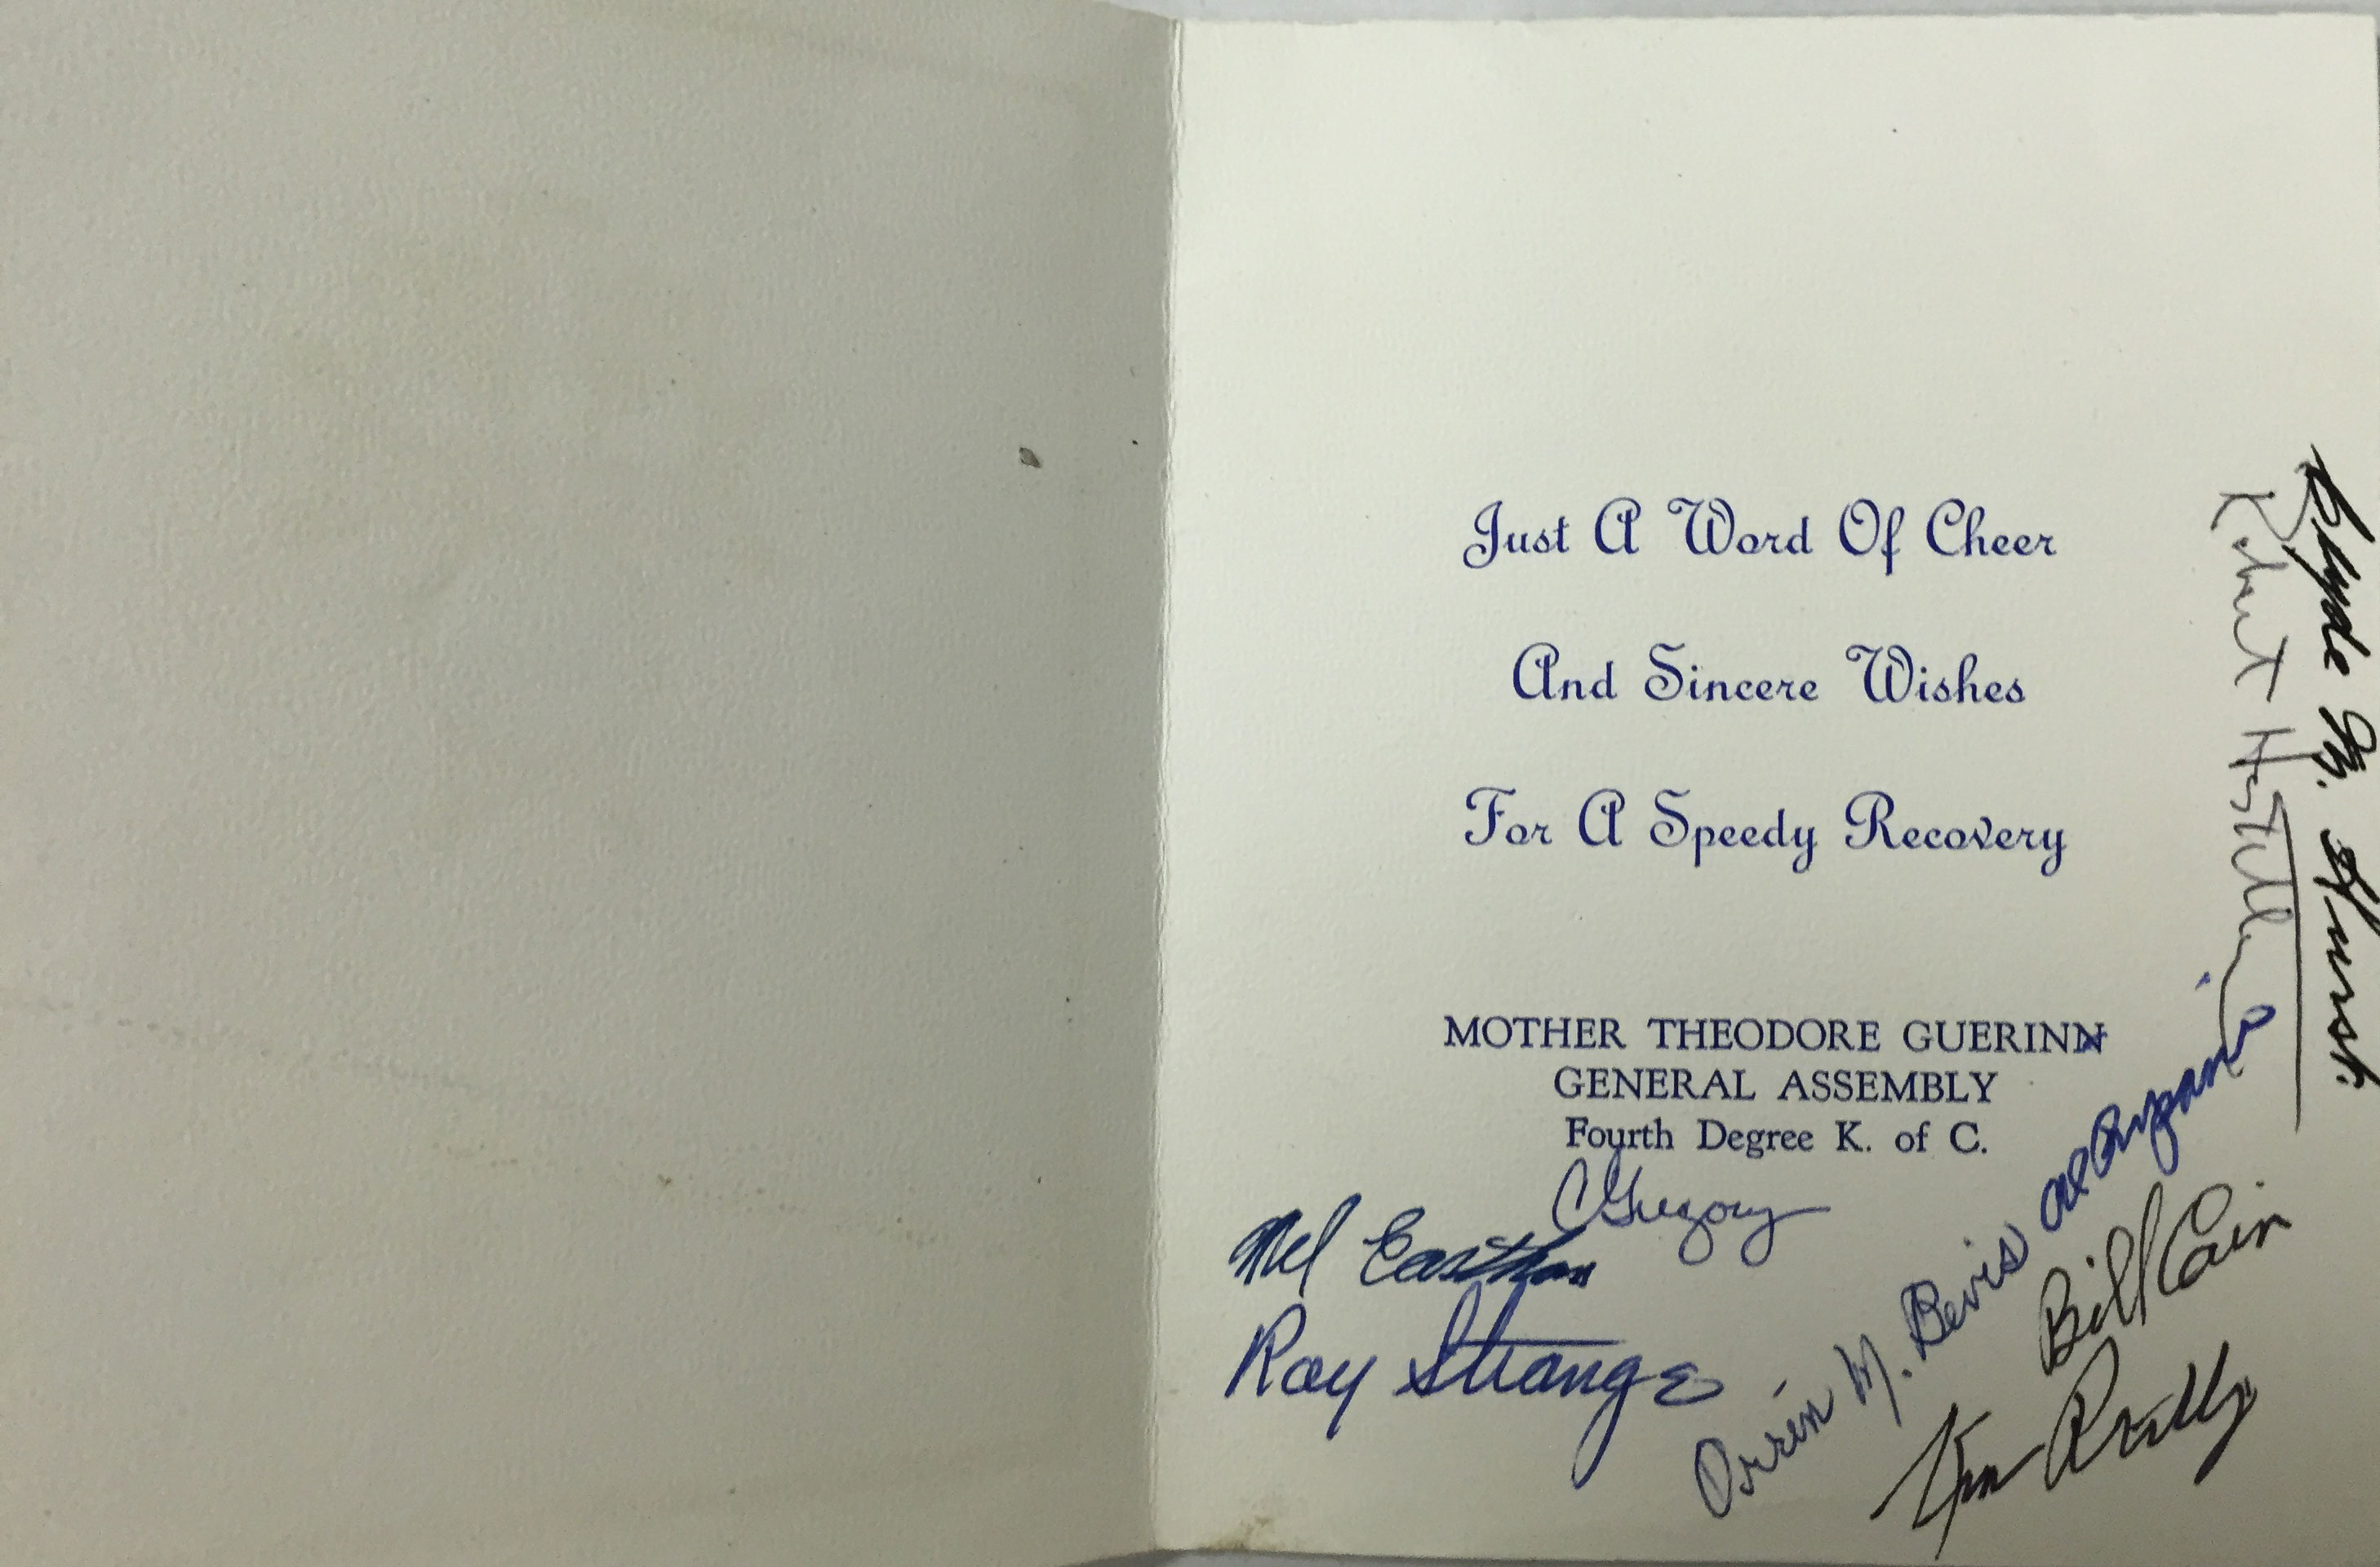 Just A Word Of Cheer
And Sincere Wishes
For A Speedy Recovery
MOTHER THEODORE GUERINN
GENERAL ASSEMBLY
Fourth Degree K. of C.
C Gregory
Mel
Ray Strange
Orrin M. Bevis
Bill Cain
Reilly
Robert
Clyde M. Hurst.